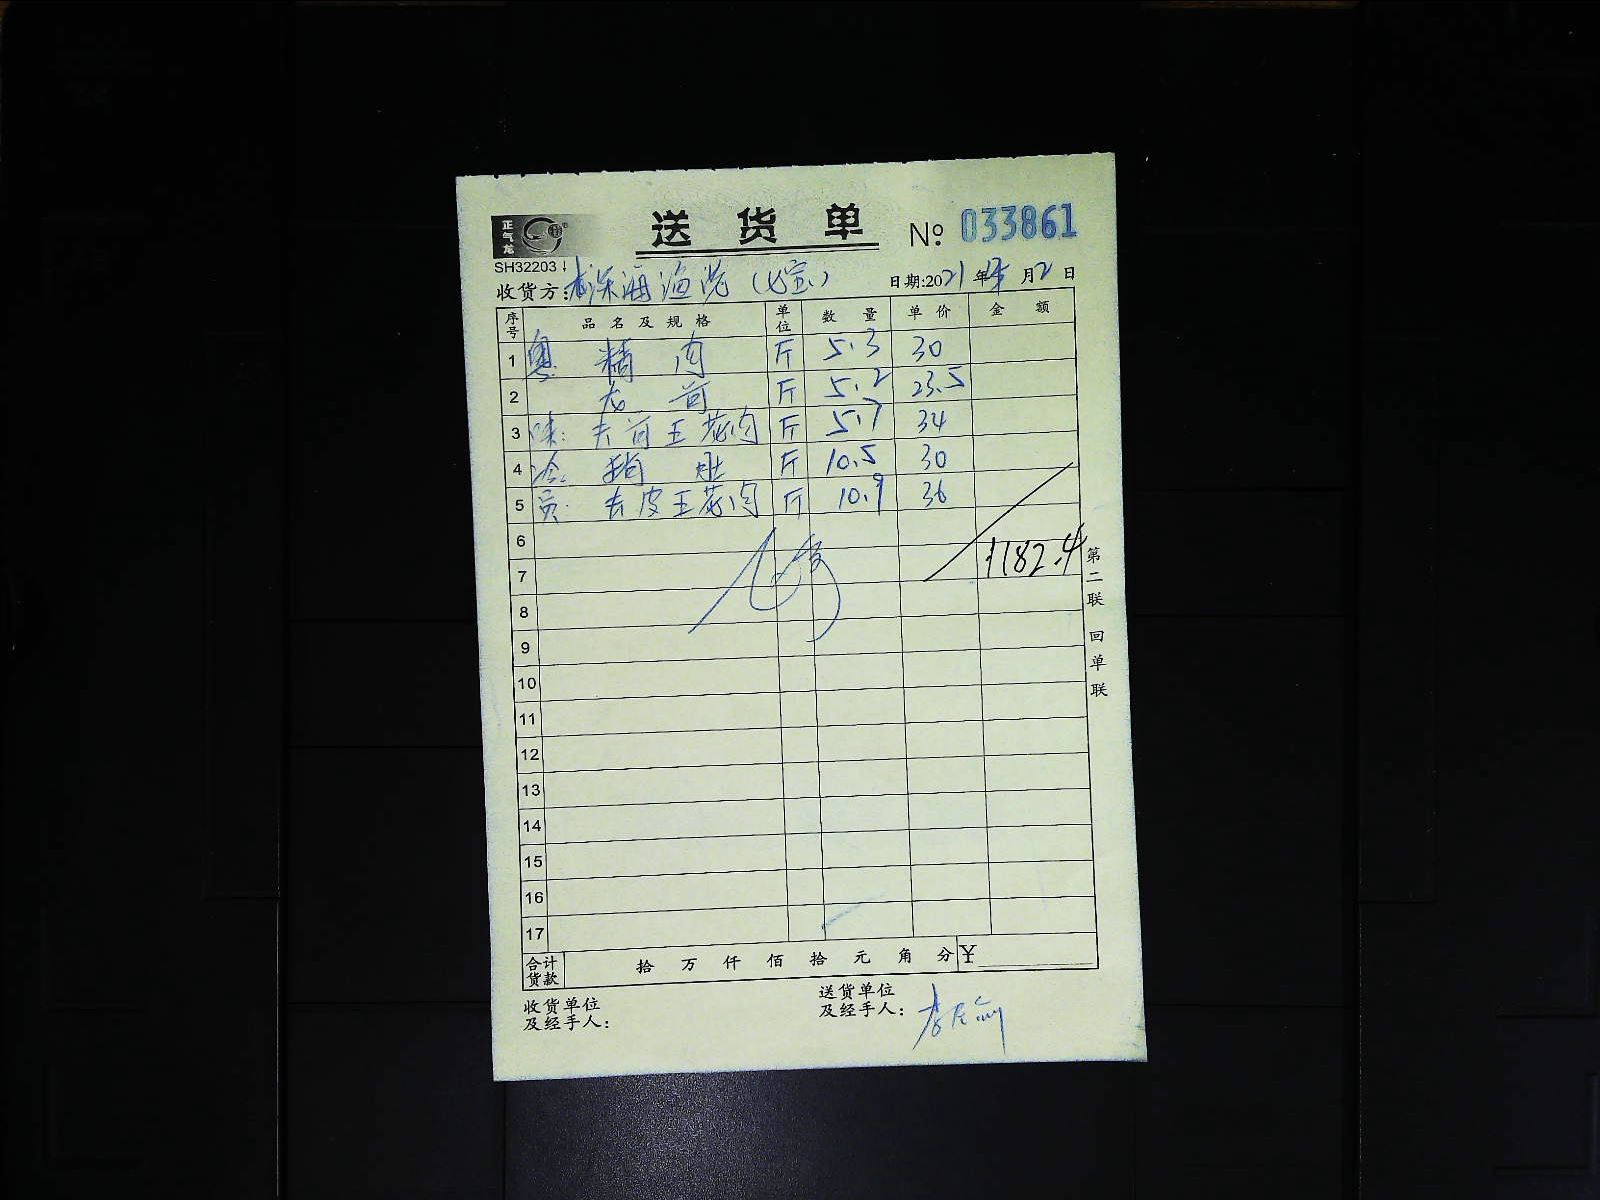 正气龙
送货单 № 033861
SH32203
收货方: 深海渔港 (七宝) 日期:2021年 月2日
序号 品名及规格 单位 数量 单价 金额
1 粤: 精肉 斤 5.3 30
2 龙骨 斤 5.2 23.5
3 味: 去骨五花肉 斤 5.7 34
4 冷: 猪肚 斤 10.5 30
5 员: 去皮五花肉 斤 10.9 36
6
7 1182.4
8
9
10
11
12
13
14
15
16
17
合计货款 拾 万 仟 佰 拾 元 角 分 ¥
收货单位及经手人:
送货单位及经手人:
第二联 回单联